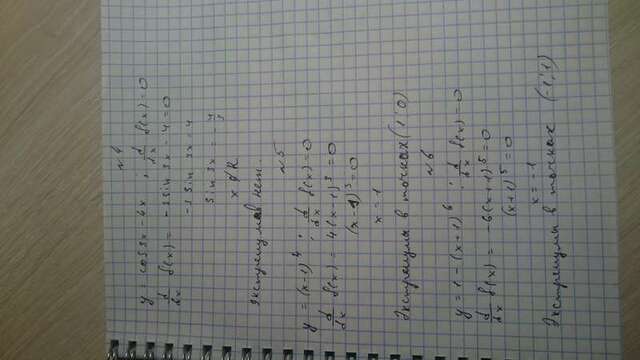 №4
y = cos3x - 4x , d/dx f(x) = 0
d/dx f(x) = -3 sin 3x - 4 = 0
-3 sin 3x = 4
sin 3x = -4/3
x ∉ R
Экстремумов нет.
№5
y = (x-1)^4 ; d/dx f(x) = 0
d/dx f(x) = 4(x-1)^3 = 0
(x-1)^3 = 0
x = 1
Экстремумы в точках (1; 0)
№6
y = 1 - (x+1)^6 ; d/dx f(x) = 0
d/dx f(x) = -6(x+1)^5 = 0
(x+1)^5 = 0
x = -1
Экстремумы в точках (-1; 1)